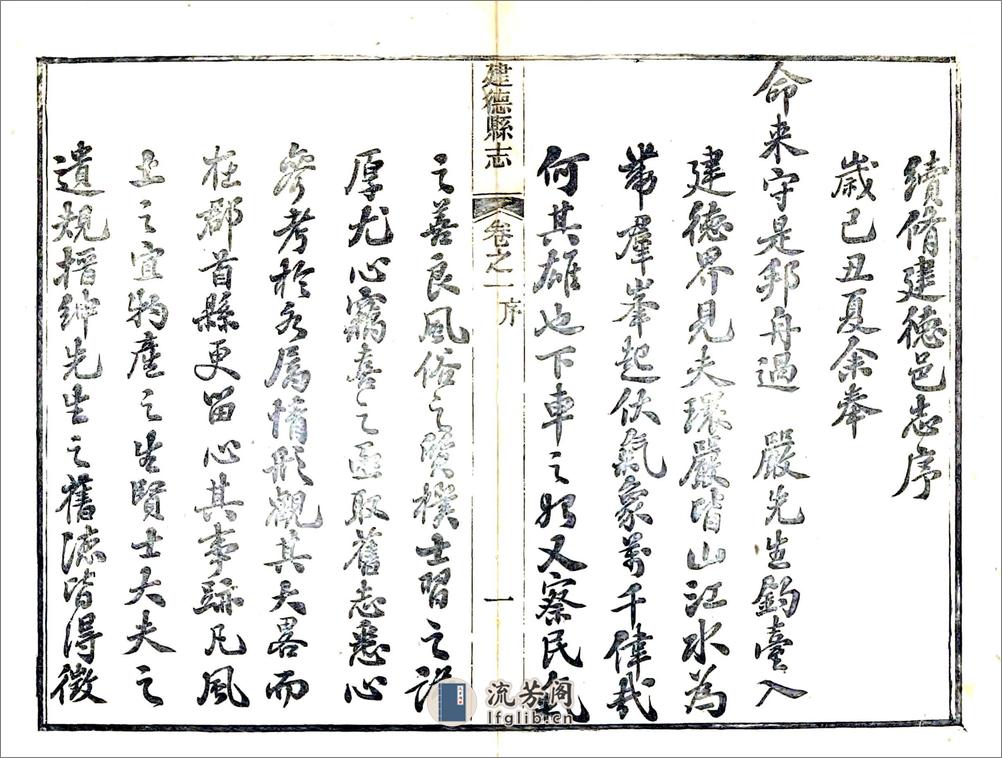 續脩建德邑志序
歲己丑夏余奉
命来守是邦舟過 嚴先生釣臺入
建德界見夫環嚴皆山江水為
帶羣峯起伏氣象萬千偉哉
何其雄也下車之始又察民氣
建德縣志 卷之一 序 一
之善良風俗之質樸士習之
厚尤心竊喜之亟取舊志悉心
參考於各屬情形觀其大畧而
在郡首縣更留心其事跡凡風
土之宜物產之生賢士大夫之
遺規搢紳先生之舊德皆得徵
流芳阁
lfglib.cn